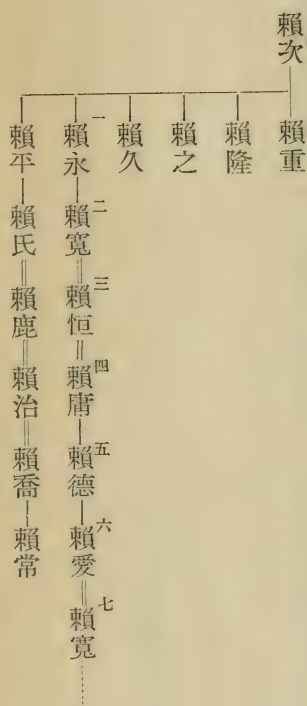 賴次 賴重
賴隆
賴之
賴久
一 賴永 二 賴寬 三 賴恒 四 賴庸 五 賴德 六 賴愛 七 賴寬
賴平 賴氏 賴鹿 賴治 賴喬 賴常